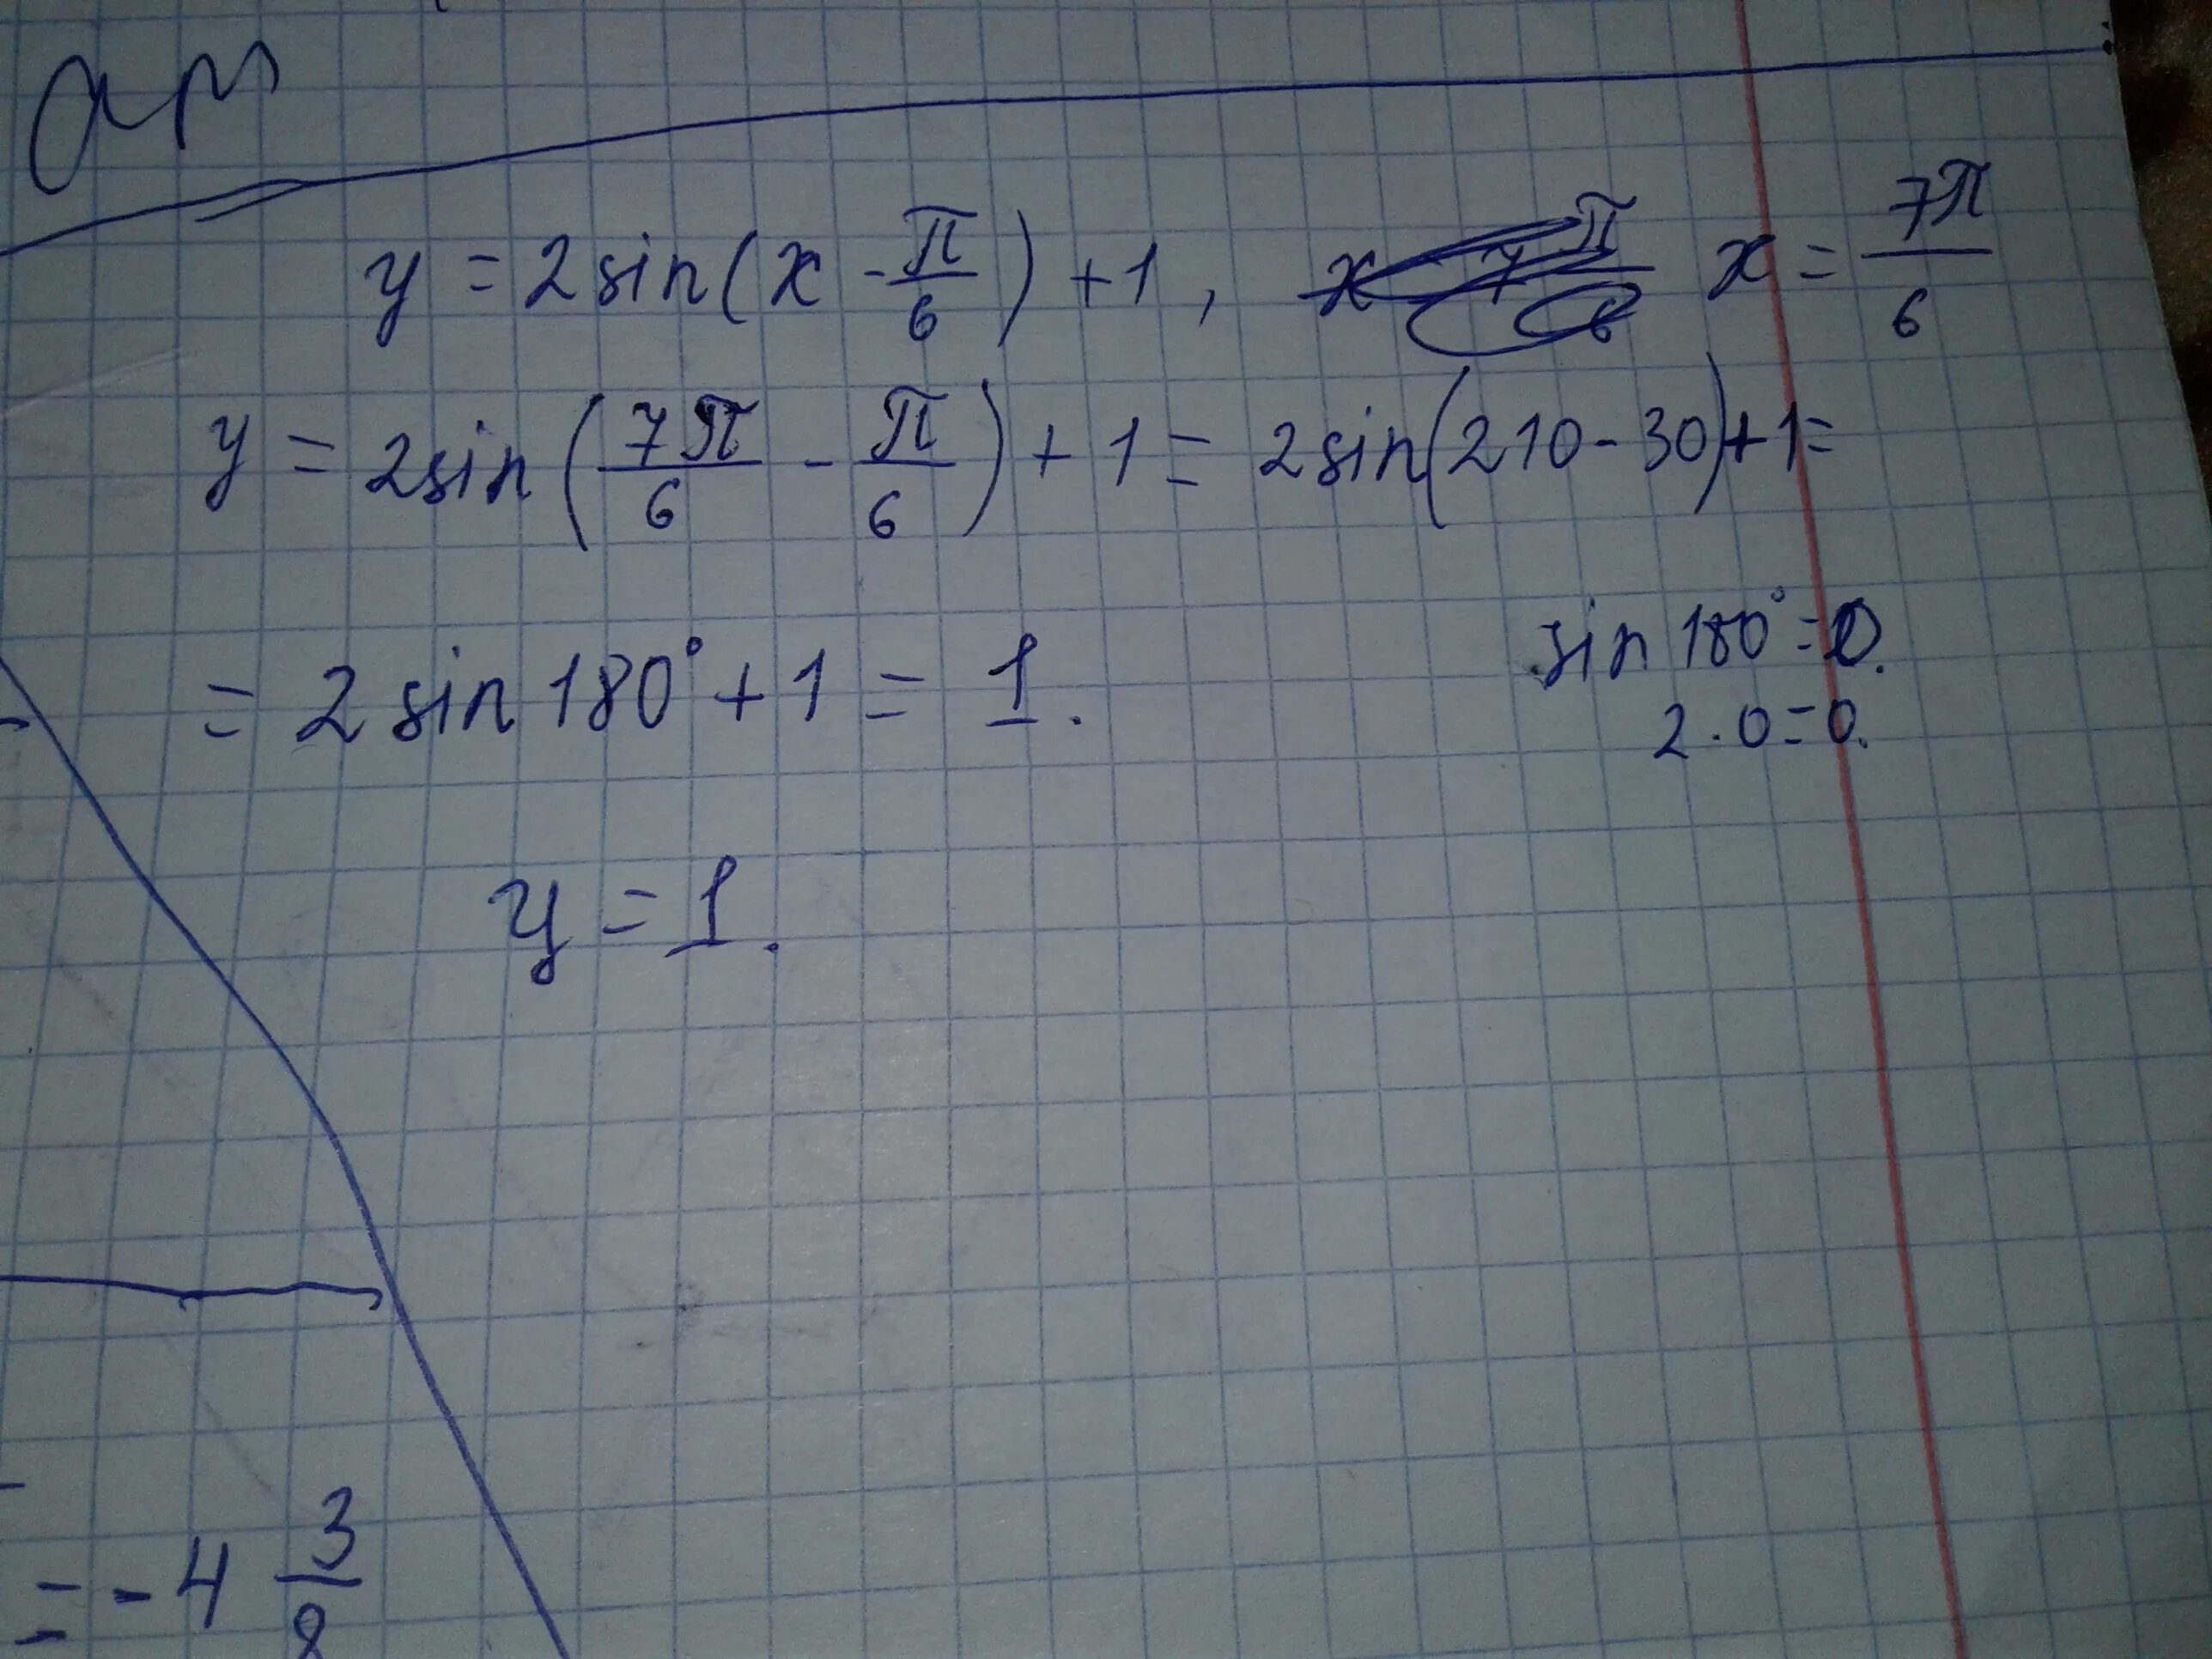 y = 2sin(x - π/6) + 1, x = 7π/6
y = 2sin(7π/6 - π/6) + 1 = 2sin(210-30)+1=
= 2 sin 180° + 1 = 1.
sin 180° = 0.
2 · 0 = 0.
y = 1.
= - 4 3/8